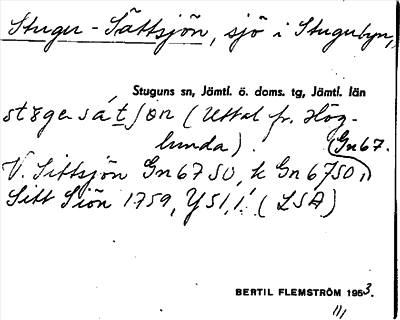 Stugu-Sättsjön, sjö i Stugubyn,
Stuguns sn, Jämtl. ö. doms. tg, Jämtl. län
stɞgɞsátjøn (Uttal fr. Hög-
lunda). (Gn67.
V. Sittsjön Gn6750, k Gn6750,)
Sitt Siön 1759, Y51,1 (LSA)
BERTIL FLEMSTRÖM 1953.